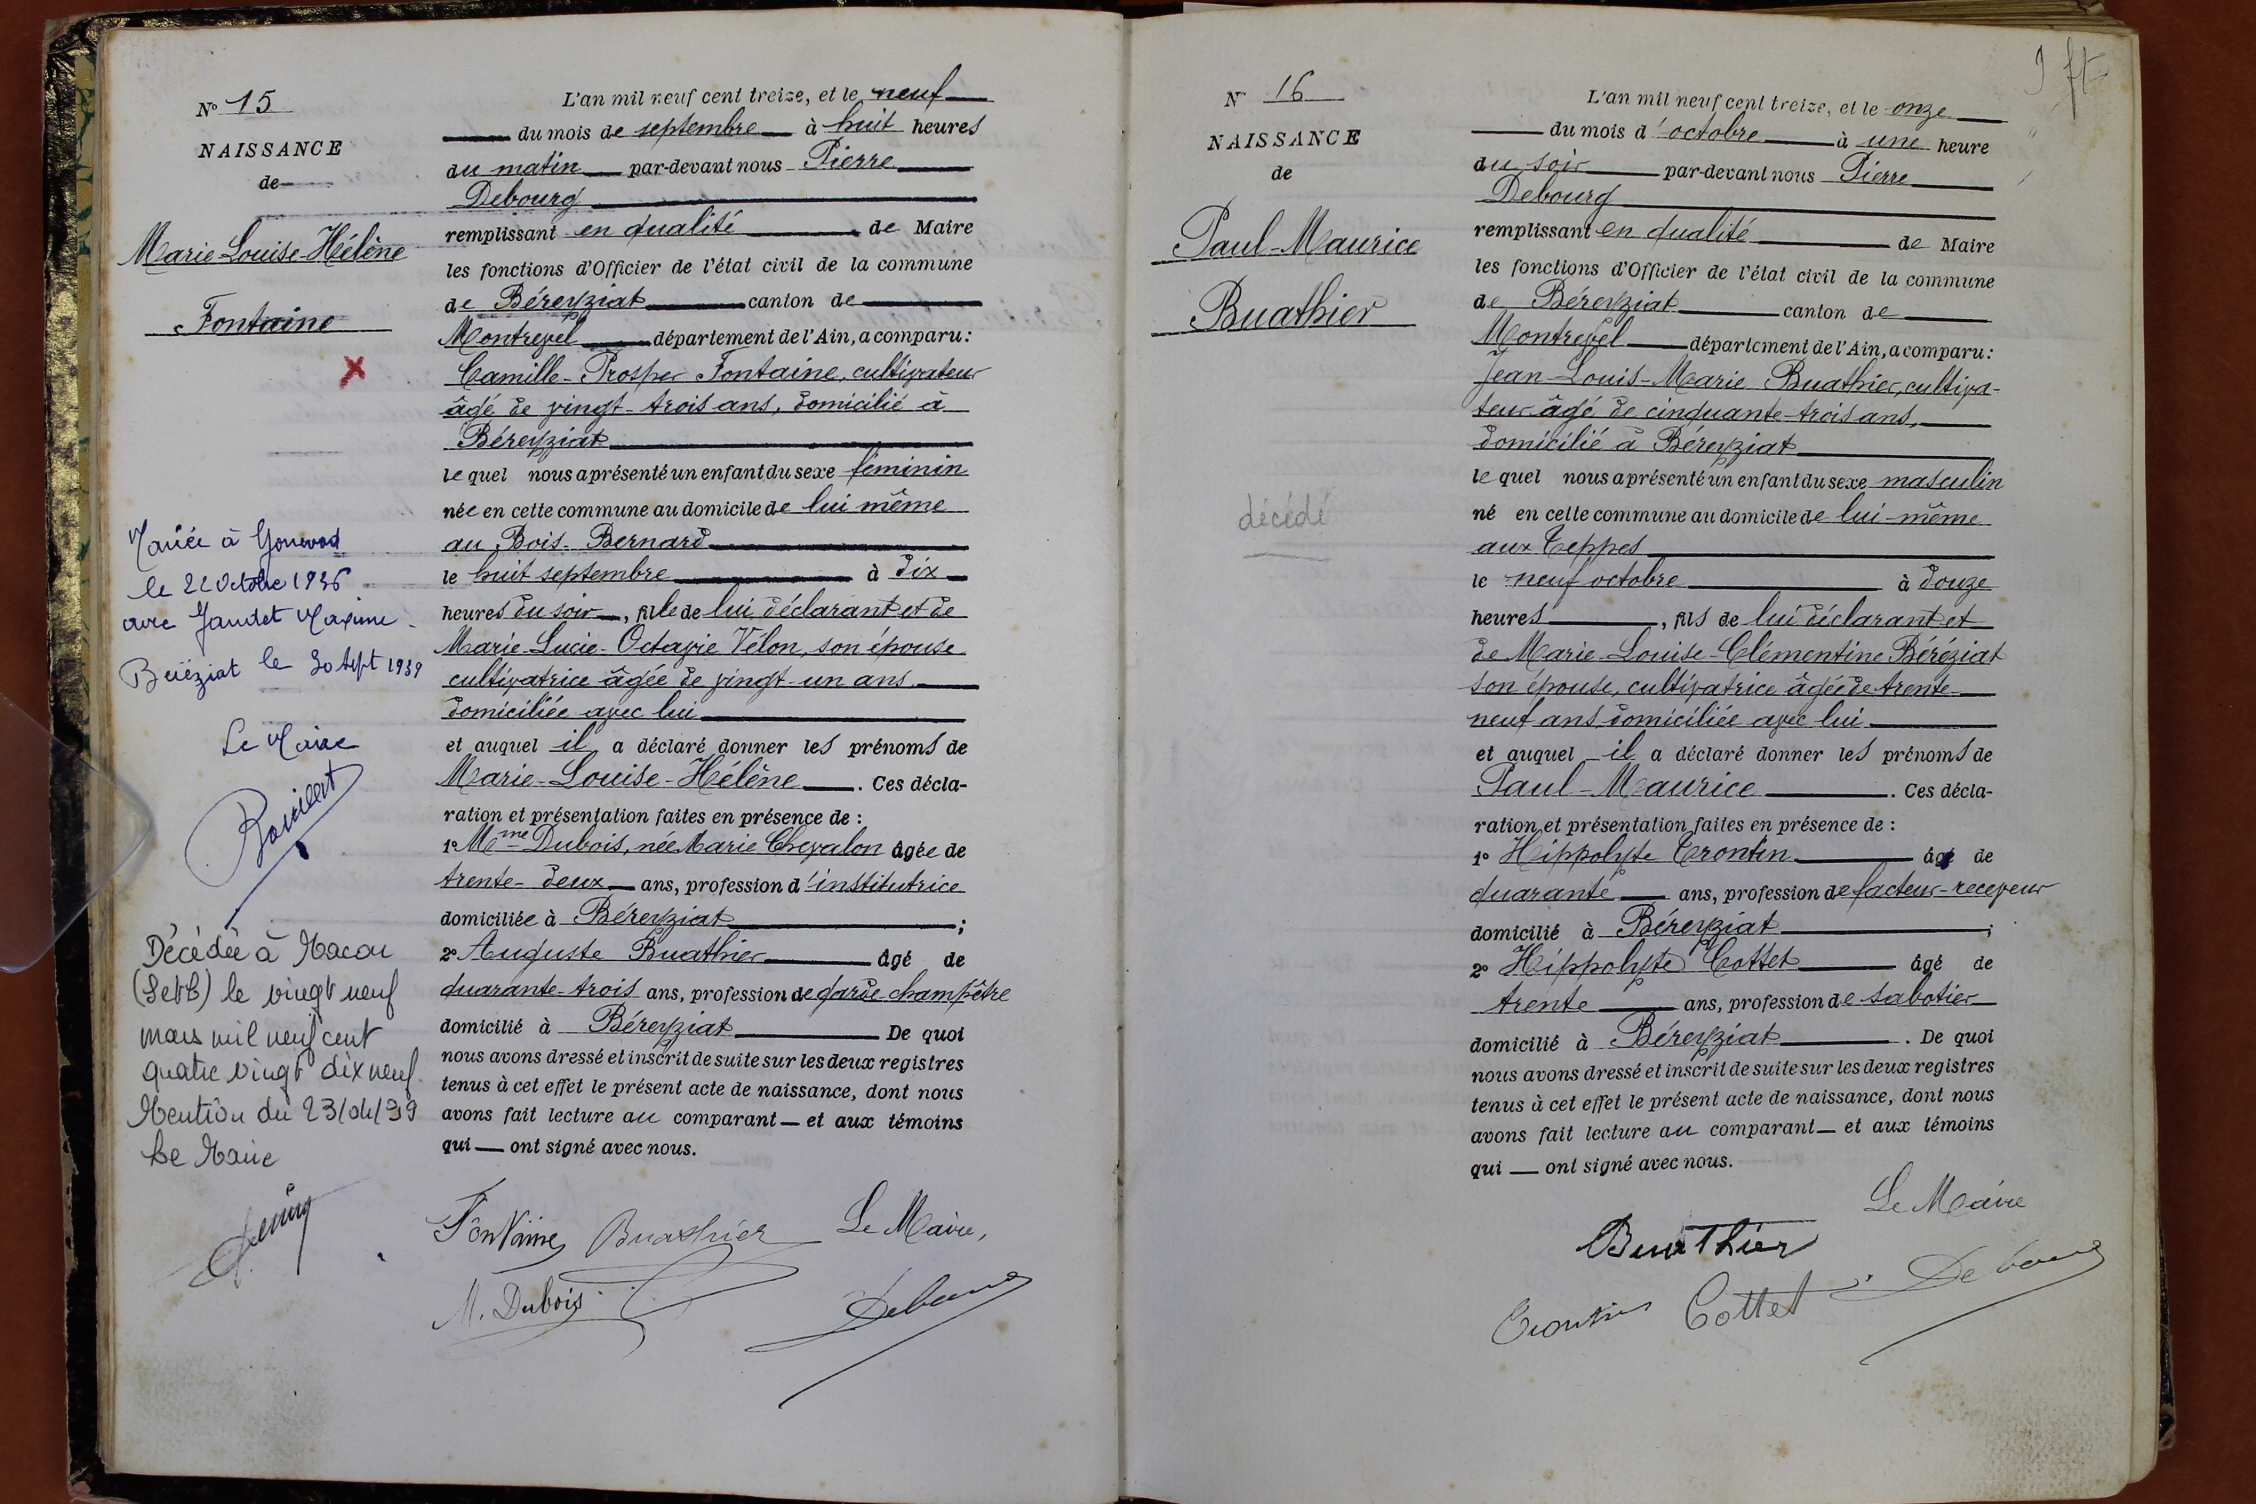 Nº 15
NAISSANCE
de
Marie-Louise-Hélène
Fontaine
Mariée à Gorrevod
le 21 Octobre 1936
avec Jaudet Maxime
Béréziat le 30 Sept 1939
Le Maire
Décédée à Macon
(S et L) le vingt neuf
mars mil neuf cent
quatre vingt dix neuf.
Mention du 23/04/99
Le Maire
L'an mil neuf cent treize, et le neuf
du mois de septembre à huit heures
du matin par-devant nous Pierre
Debourg
remplissant en qualité de Maire
les fonctions d'Officier de l'état civil de la commune
de Béreyziat canton de
Montrevel département de l'Ain, a comparu:
Camille-Prosper Fontaine, cultivateur
âgé de vingt-trois ans, domicilié à
Béreyziat
le quel nous a présenté un enfant du sexe féminin
née en cette commune au domicile de lui même
au Bois-Bernard
le huit septembre à dix
heures du soir, fille de lui déclarant et de
Marie-Lucie-Octavie Vélon, son épouse
cultivatrice âgée de vingt-un ans
domiciliée avec lui
et auquel il a déclaré donner les prénoms de
Marie-Louise-Hélène. Ces décla-
ration et présentation faites en présence de :
1º Mme Dubois, née Marie Chevalon âgée de
trente-deux ans, profession d'institutrice
domiciliée à Béreyziat ;
2º Auguste Buathier âgé de
quarante-trois ans, profession de garde champêtre
domicilié à Béreyziat De quoi
nous avons dressé et inscrit de suite sur les deux registres
tenus à cet effet le présent acte de naissance, dont nous
avons fait lecture au comparant et aux témoins
qui ont signé avec nous.
Fontaine Buathier Le Maire,
M. Dubois Debourg
9 ft
Nº 16
NAISSANCE
de
Paul-Maurice
Buathier
décédé
L'an mil neuf cent treize, et le onze
du mois d'octobre à une heure
du soir par-devant nous Pierre
Debourg
remplissant en qualité de Maire
les fonctions d'Officier de l'état civil de la commune
de Béreyziat canton de
Montrevel département de l'Ain, a comparu:
Jean-Louis-Marie Buathier, cultiva-
teur âgé de cinquante-trois ans,
domicilié à Béreyziat
le quel nous a présenté un enfant du sexe masculin
né en cette commune au domicile de lui-même
aux Teppes
le neuf octobre à douze
heures, fils de lui déclarant et
de Marie-Louise-Clémentine Béréziat
son épouse, cultivatrice âgée de trente-
neuf ans, domiciliée avec lui
et auquel il a déclaré donner les prénoms de
Paul-Maurice. Ces décla-
ration et présentation faites en présence de :
1º Hippolyte Trontin âgé de
quarante ans, profession de facteur-receveur
domicilié à Béreyziat ;
2º Hippolyte Cottet âgé de
trente ans, profession de sabotier
domicilié à Béreyziat. De quoi
nous avons dressé et inscrit de suite sur les deux registres
tenus à cet effet le présent acte de naissance, dont nous
avons fait lecture au comparant et aux témoins
qui ont signé avec nous.
Le Maire
Buathier
Trontin Cottet Debourg